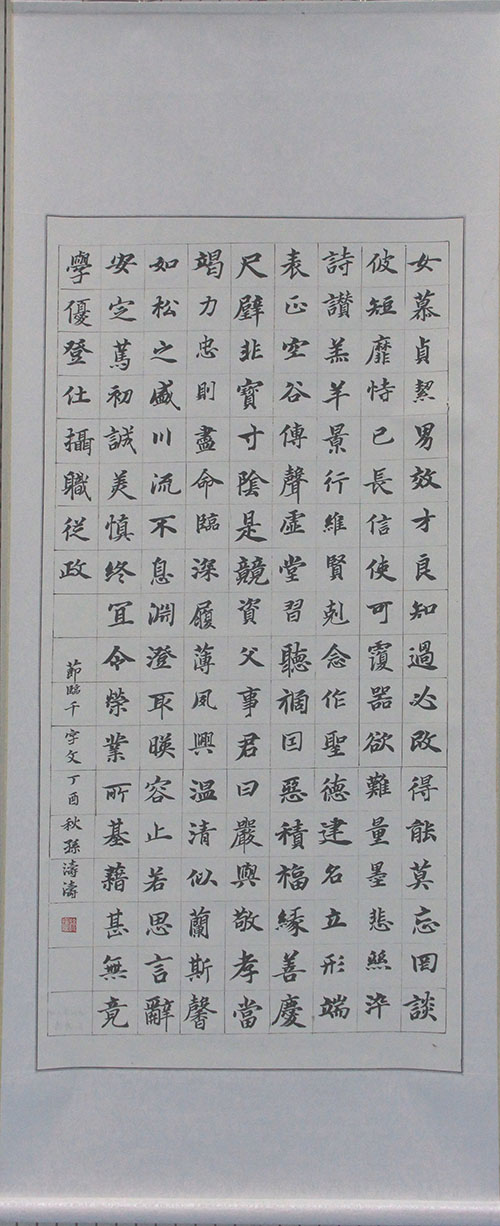 女慕貞絜男效才良知過必改得能莫忘罔談
彼短靡恃己長信使可覆器欲難量墨悲絲染
詩讃羔羊景行維賢剋念作聖德建名立形端
表正空谷傳聲虛堂習聽禍因惡積福緣善慶
尺璧非寶寸陰是競資父事君曰嚴與敬孝當
竭力忠則盡命臨深履薄夙興温清似蘭斯馨
如松之盛川流不息淵澄取暎容止若思言辭
安定篤初誠美慎終宜令榮業所基藉甚無竟
學優登仕攝職從政
節臨千字文丁酉秋孫濤濤